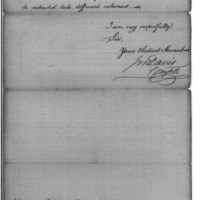 be extended into different columns.
I am, very respectfully
Sir,
Your Obedient Servant
Jno Davis